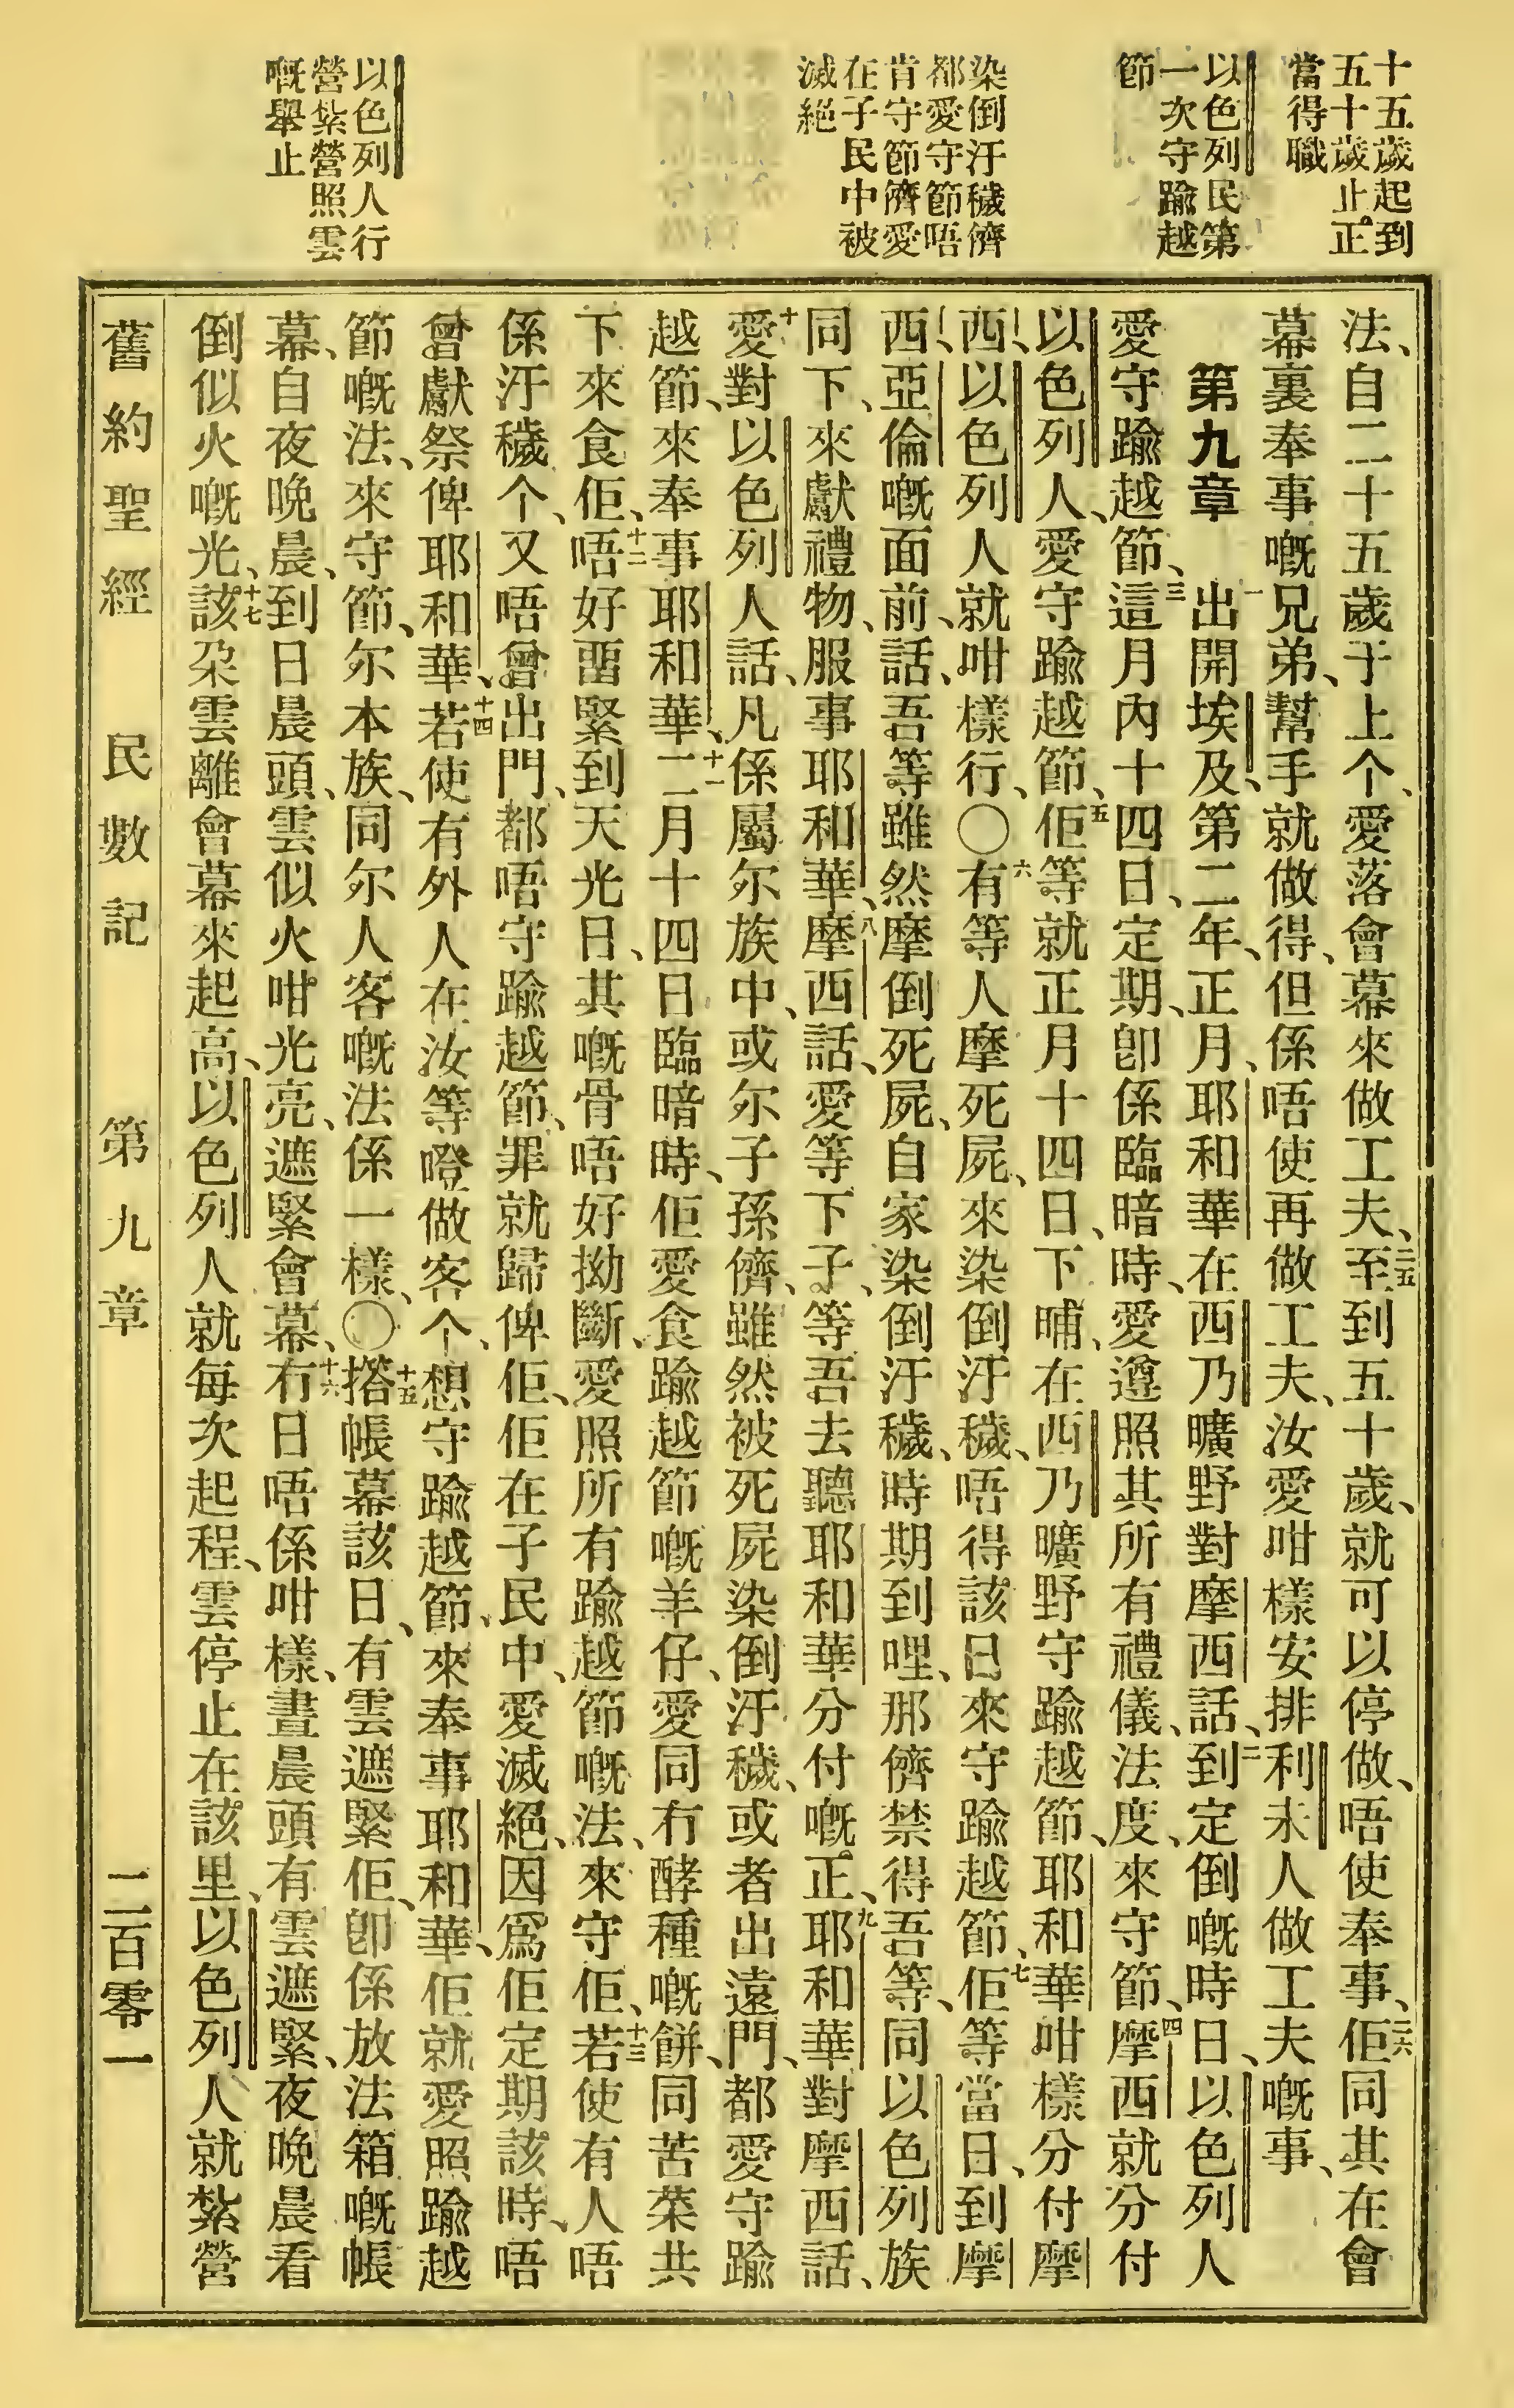 十五歲起到
五十歲止。正
當得職
以色列民第
一次守踰越
節
染倒汙穢儕
都愛守節唔
肯守節儕愛
在子民中被
滅絕
以色列人行
營紮營照雲
嘅舉止
法、自二十五歲于上个、愛落會幕來做工夫、二五至到五十歲、就可以停做、唔使奉事、二六佢同其在會
幕裏奉事嘅兄弟、幫手就做得、但係唔使再做工夫、汝愛咁樣安排利未人做工夫嘅事、
第九章 一出開埃及、第二年、正月、耶和華在西乃曠野對摩西話、二到定倒嘅時日、以色列人
愛守踰越節、三這月內十四日、定期、卽係臨暗時、愛遵照其所有禮儀、法度、來守節、四摩西就分付
以色列人、愛守踰越節、五佢等就正月十四日、下晡、在西乃曠野守踰越節、耶和華咁樣分付摩
西、以色列人就咁樣行、〇六有等人摩死屍、來染倒汙穢、唔得該日來守踰越節、七佢等當日、到摩
西、亞倫嘅面前、話、吾等雖然摩倒死屍、自家染倒汙穢、時期到哩、那儕禁得吾等、同以色列族
同下、來獻禮物、服事耶和華、八摩西話、愛等下子、等吾去聽耶和華分付嘅正、九耶和華對摩西話、
十愛對以色列人話、凡係屬尔族中、或尔子孫儕、雖然被死屍染倒汙穢、或者出遠門、都愛守踰
越節、來奉事耶和華、十一二月十四日臨暗時、佢愛食踰越節嘅羊仔、愛同冇酵種嘅餅、同苦菜共
下來食佢、十二唔好畱緊到天光日、其嘅骨唔好拗斷、愛照所有踰越節嘅法、來守佢、十三若使有人唔
係汙穢个、又唔曾出門、都唔守踰越節、罪就歸俾佢、佢在子民中、愛滅絕、因爲佢定期該時、唔
曾獻祭俾耶和華、十四若使有外人在汝等蹬做客个、想守踰越節、來奉事耶和華、佢就愛照踰越
節嘅法、來守節、尔本族、同尔人客嘅法係一樣、〇十五搭帳幕該日、有雲遮緊佢、卽係放法箱嘅帳
幕、自夜晚晨、到日晨頭、雲似火咁光亮、遮緊會幕、十六冇日唔係咁樣、晝晨頭有雲遮緊、夜晚晨看
倒似火嘅光、十七該朶雲離會幕來起高、以色列人就每次起程、雲停止在該里、以色列人就紮營
舊約聖經 民數記 第九章 二百零一